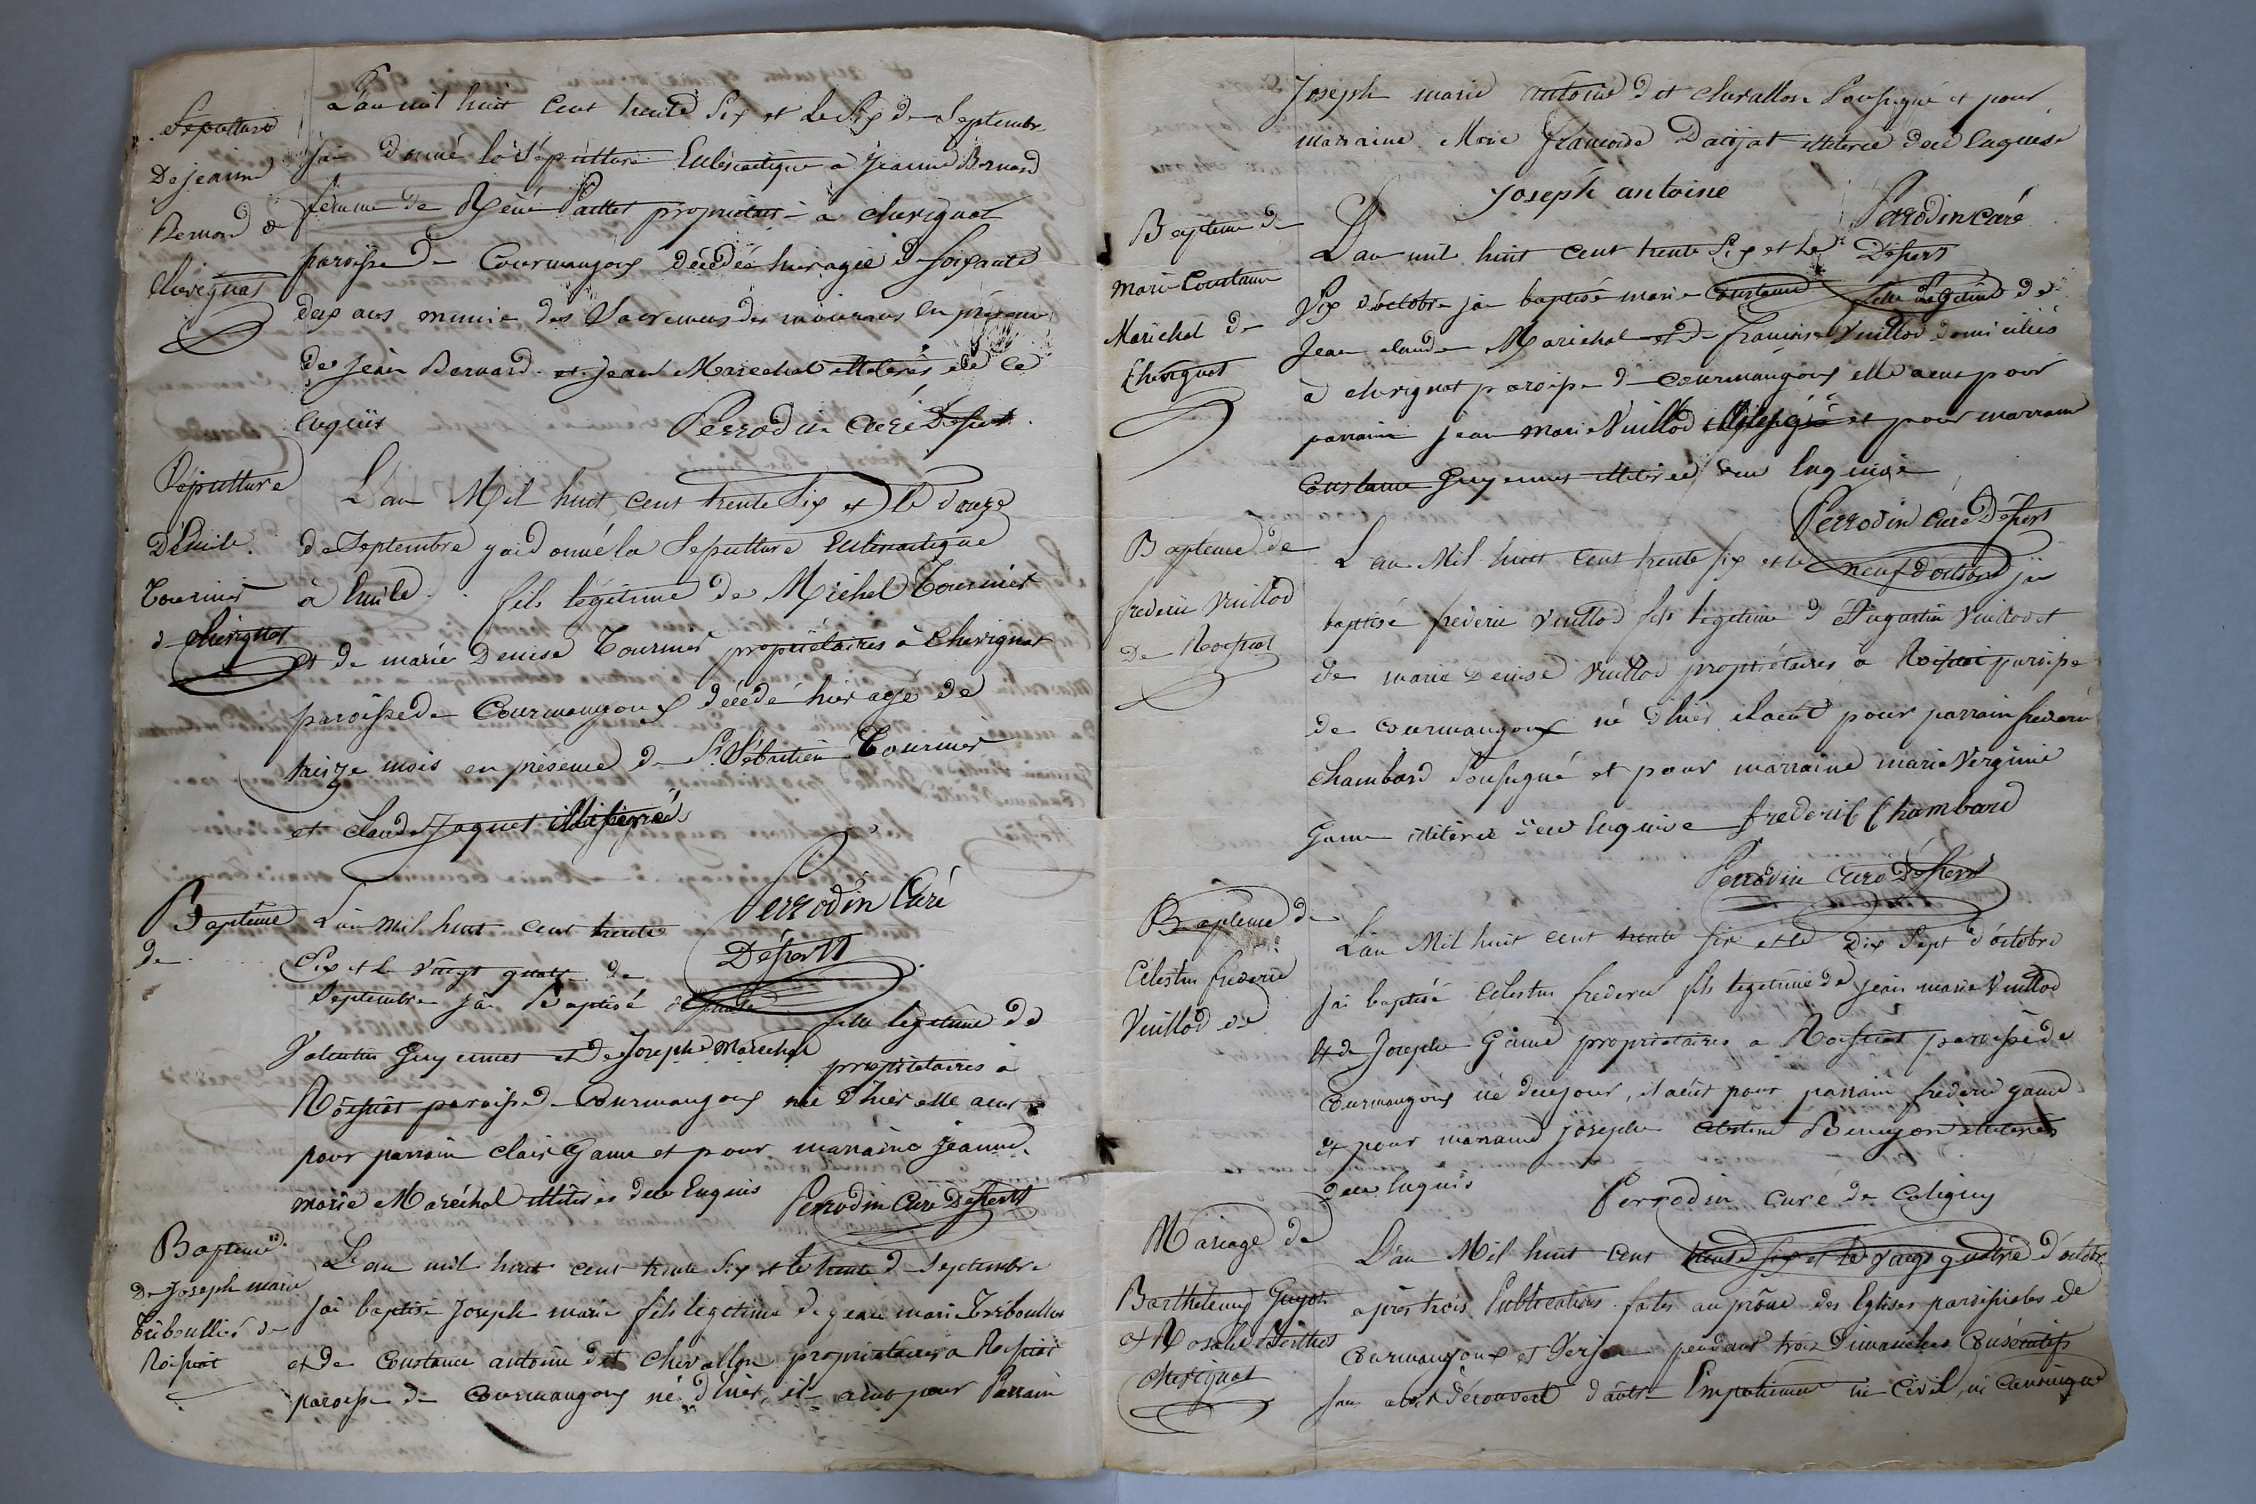 Sepulture
De jeanne
Bernard de
Chevignat
L'an mil huit Cent trente Six et le Six de Septembre
j'ai donné la Sépulture Ecclésiastique à Jeanne Bernard
femme de Réné Paillet propriétaire à chevignat
paroisse de Courmangoux décédée hier agée de soixante
dix ans munie des Sacremens des mourans en présence
de jean Bernard et jean Marechal illiterés de ce
Enquis Perrodin Curé Dessert
Sépulture
D'Emile
Tournier
de chevignat
L'an Mil huit Cent trente Six et le douze
de Septembre j'ai donné la Sepulture Ecclésiastique
à Emile fils légitime de Michel Tournier
et de marie Denise Tournier propriétaires à Chevignat
paroisse de Courmangoux décédé hier age de
treize mois en présence de Sébastien Tournier
et claude Jaquet illiterés
Perrodin Curé
Dessert
Baptême
de
L'an mil huit cent trente
Six et le vingt quatre de
Septembre j'ai baptisé
fille légitime de
Valentin Guyennet et de Josephe Maréchal
propriétaires à
Roissiat paroisse de Courmangoux née d'hier elle a eut
pour parrain clair Game et pour marraine jeanne
marie Maréchal illiteres de ce Enquis Perrodin Curé Dessert
Bapteme
De Joseph marie
Triboullier de
Roissiat
L'an mil huit cent trente Six et le trente de Septembre
j'ai baptisé Joseph marie fils legitime de jean marie Triboullier
et de Constance antoine dit chevallon propriétaires a Roissiat
paroisse de Courmangoux né d'hier, il a eut pour Parrain
Joseph marie antoine dit chevallon Soussigné et pour
marraine Marie françoise Darrjat illiteree de ce Enquise
Joseph antoine
Perrodin curé
Dessert
Baptême de
Marie Constance
Maréchal de
Chevignat
L'an mil huit cent trente Six et le
Six d'octobre j'ai baptisé marie Constance fille légitime de
Jean claude Maréchal et de françoise Vuillod domiciliés
à chevignat paroisse de Courmangoux elle a eut pour
parrain jean marie Vuillod et pour marraine
Constance Guyennet illiterée de ce Enquise
Perrodin curé Dessert
Baptême de
frederic Vuillod
De Roissiat
L'an Mil huit Cent trente Six et le neuf d'octobre j'ai
baptisé frédéric Vuillod fils légitime d'Augustin Vuillod et
de marie Denise Vuillod propriétaires a Roissiat paroisse
de courmangoux né d'hier il a eut pour parrain frederic
Chambard Soussigné et pour marraine marie Verginie
Game illiterée de ce Enquise frederic Chambard
Perrodin curé Dessert
Baptême de
Célestin frederic
Vuillod de
L'an Mil huit cent trente Six et le Dix Sept d'octobre
j'ai baptisé Célestin frederic fils legetime de jean marie Vuillod
et de Josephe Game propriétaires a Roissiat paroisse de
Courmangoux né de ce jour, il a eut pour parrain fréderic game
et pour marraine josephe célestine illiteres
de ce Enquis Perrodin curé de Coligny
Mariage de
Barthelemy Guyot
et Rosalie
chevignat
L'an Mil huit Cent trente Six et le vingt quatre d'octobre
après trois Publications faites au prône des Eglises paroissiales de
Courmangoux et Verjon pendant trois Dimanches Consécutifs
sans avoir découvert d'autre Empêchement ni Civil, ni Canonique